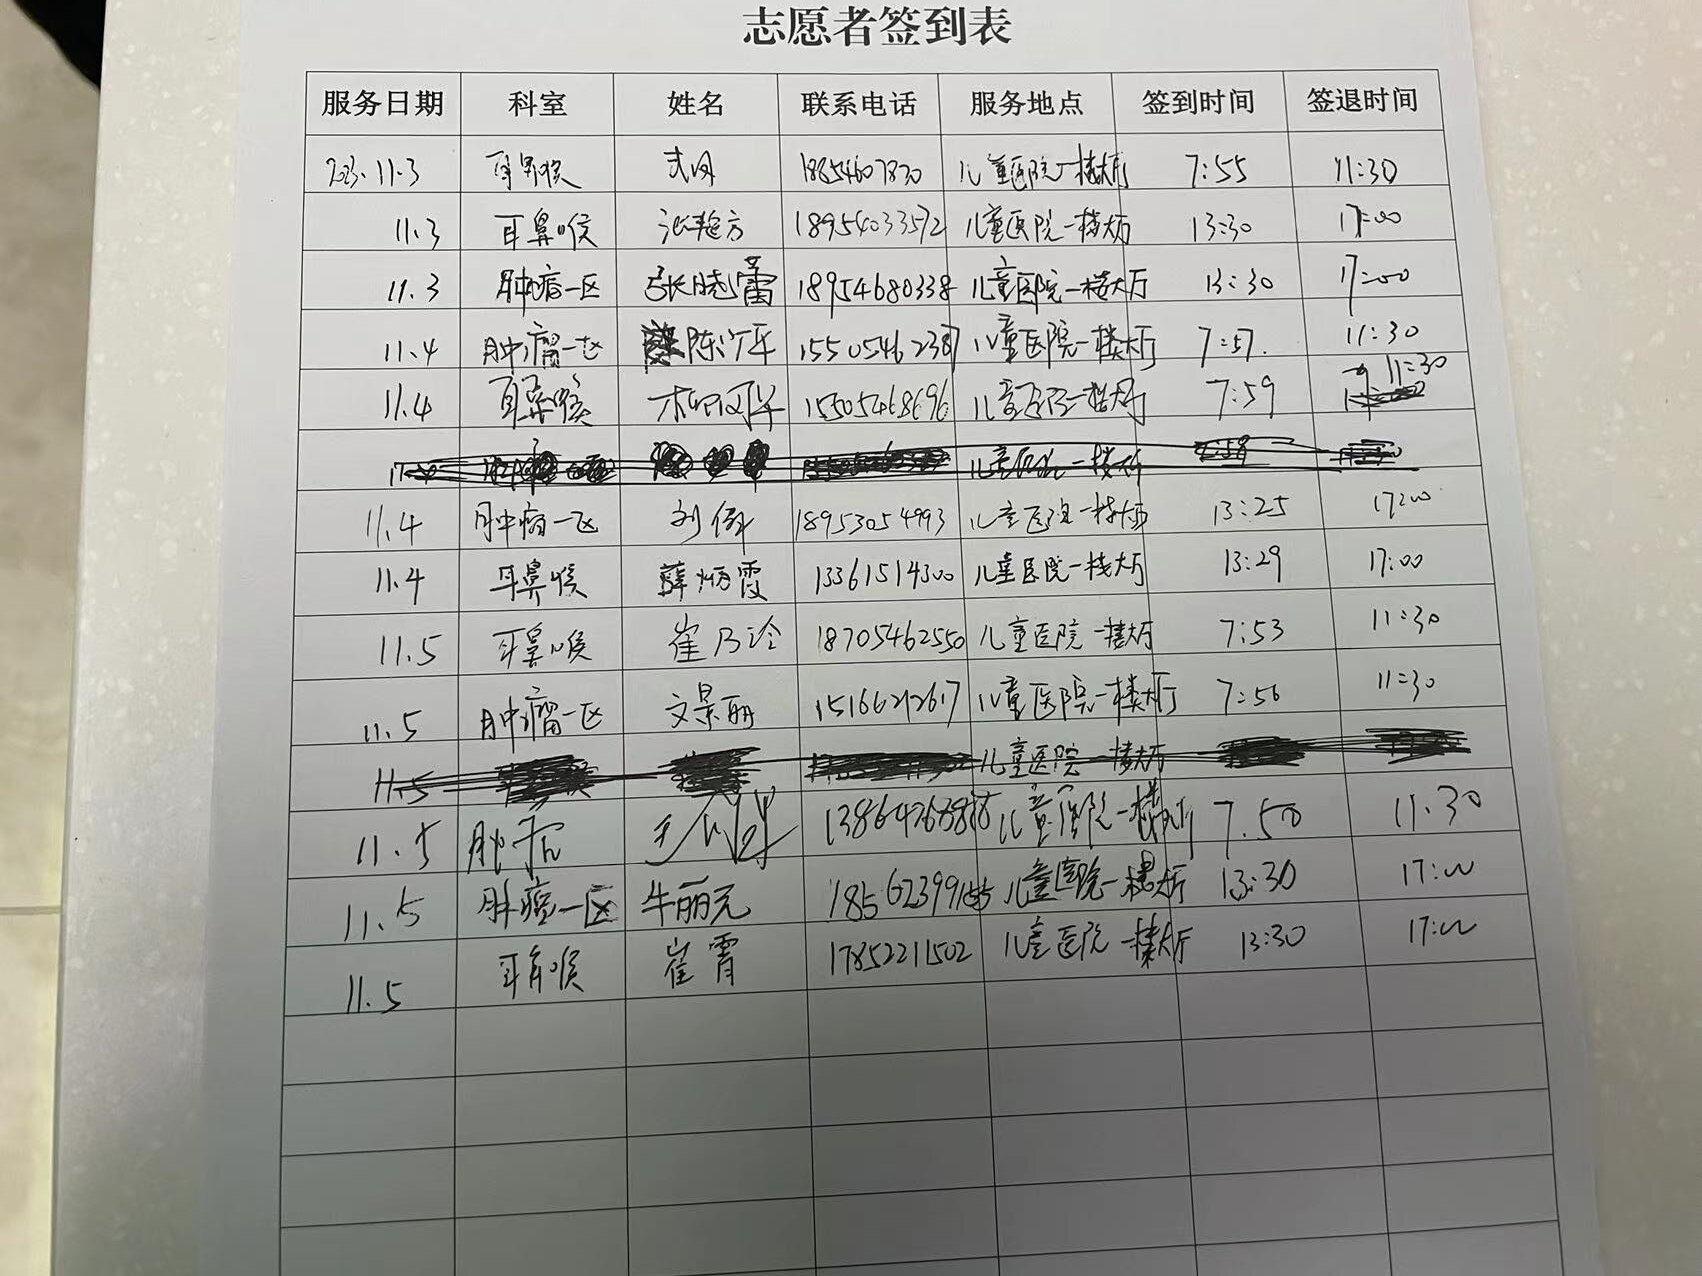 志愿者签到表
服务日期 科室 姓名 联系电话 服务地点 签到时间 签退时间
2023.11.3 耳鼻喉 18854607830 儿童医院一楼大厅 7:55 11:30
11.3 耳鼻喉 18954033592 儿童医院一楼大厅 13:30 17:00
11.3 肿瘤一区 张晓蕾 18954680338 儿童医院一楼大厅 13:30 17:00
11.4 肿瘤一区 15505462387 儿童医院一楼大厅 7:57 11:30
11.4 耳鼻喉 15505468696 儿童医院一楼大厅 7:59 11:30
儿童医院一楼大厅
11.4 肿瘤一区 18953054993 儿童医院一楼大厅 13:25 17:00
11.4 耳鼻喉 薛炳霞 13361514300 儿童医院一楼大厅 13:29 17:00
11.5 耳鼻喉 崔乃泠 18705462550 儿童医院一楼大厅 7:53 11:30
11.5 肿瘤一区 文景丽 15166212617 儿童医院一楼大厅 7:56 11:30
11.5 儿童医院一楼大厅
11.5 儿童医院一楼大厅 7.50 11.30
11.5 肿瘤一区 牛丽元 儿童医院一楼大厅 13:30 17:00
11.5 耳鼻喉 崔霄 17852211502 儿童医院一楼大厅 13:30 17:00